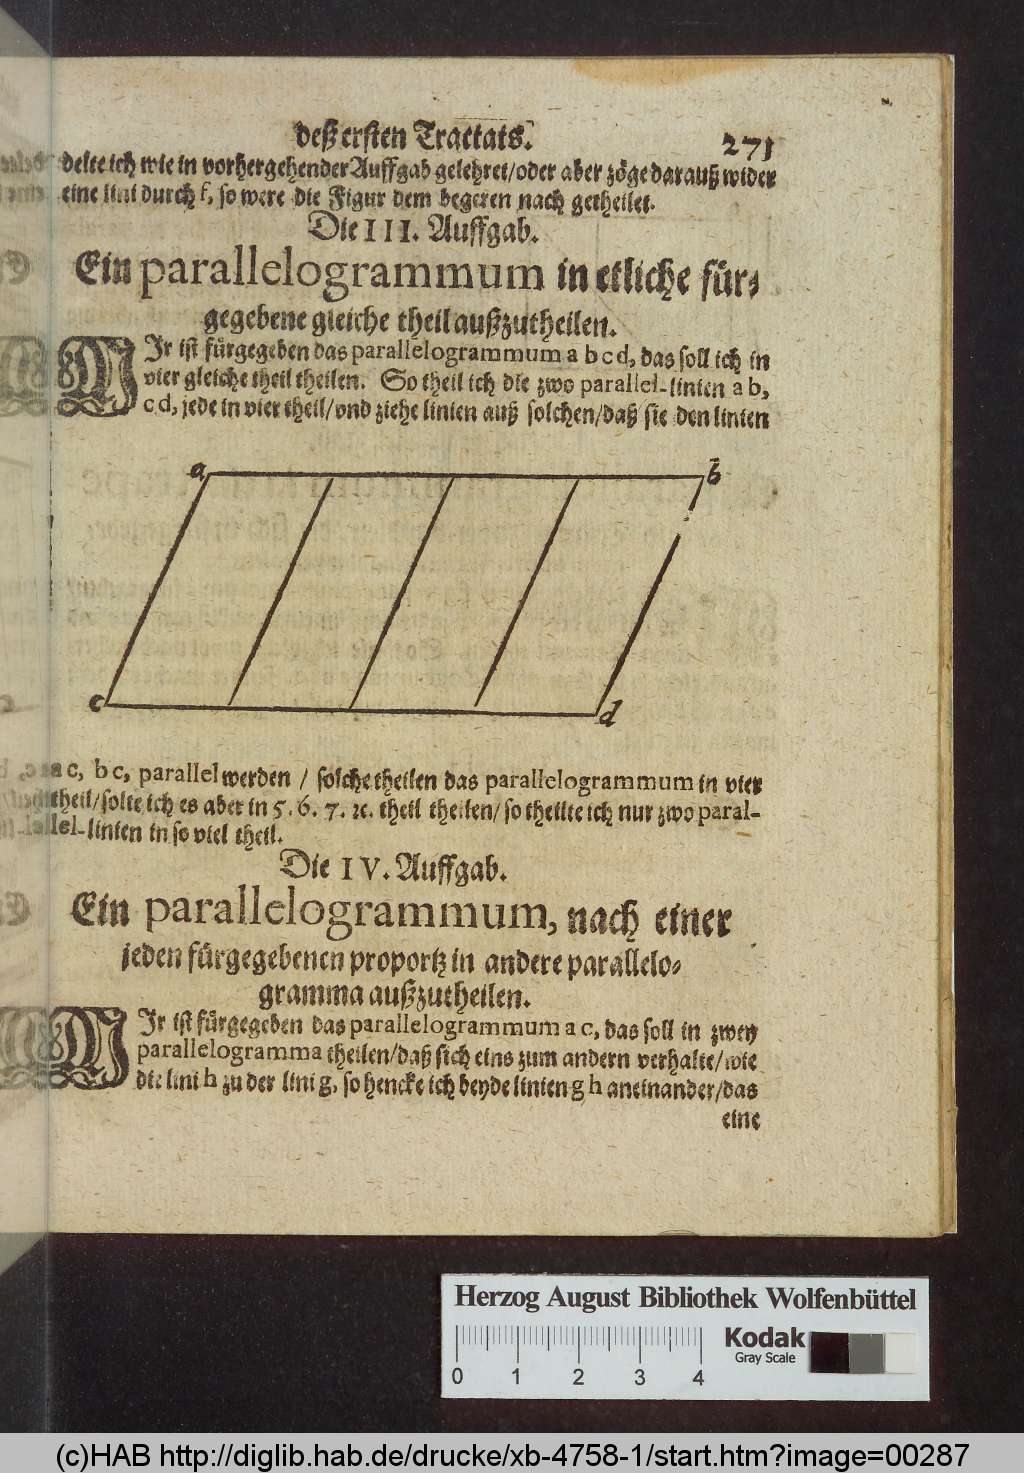 deß ersten Tractats.
271
delte ich wie in vorhergehender Auffgab gelehret/oder aber zöge darauß wider
eine lini durch f, so were die Figur dem begeren nach getheilet.
Die III. Auffgab.
Ein parallelogrammum in etliche für⸗
gegebene gleiche theil außzutheilen.
MIr ist fürgegeben das parallelogrammum a b c d, das soll ich in
vier gleiche theil theilen. So theil ich die zwo parallel-linien a b,
c d, jede in vier theil/vnd ziehe linien auß solchen/daß sie den linien
a
b
c
d
a c, b c, parallel werden / solche theilen das parallelogrammum in vier
theil/solte ich es aber in 5. 6. 7. ꝛc. theil theilen/so theilte ich nur zwo paral-
lel-linien in so viel theil.
Die IV. Auffgab.
Ein parallelogrammum, nach einer
jeden fürgegebenen proportz in andere parallelo⸗
gramma außzutheilen.
MIr ist fürgegeben das parallelogrammum a c, das soll in zwey
parallelogramma theilen/daß sich eins zum andern verhalte/wie
die lini h zu der lini g, so hencke ich beyde linien g h aneinander/das
eine
Herzog August Bibliothek Wolfenbüttel
0 1 2 3 4
Kodak
Gray Scale
(c)HAB http://diglib.hab.de/drucke/xb-4758-1/start.htm?image=00287